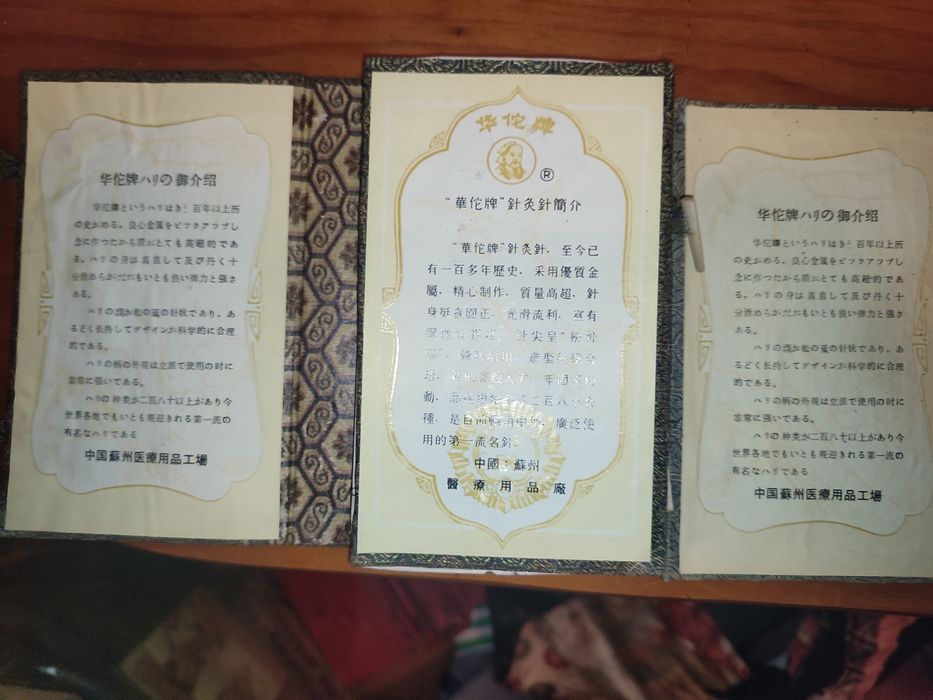 华佗牌ハリの御介绍
华佗牌というハリはき 百年以上历
の史がめる。良心金属をピツクアツプし
念に作つたから质がとても高超的であ
る。ハリの身は真直して及び丹く十
分滑めらかだがもいとも良い弹力と强さ
ある。
ハリの 松の 针状であり、あ
るどく长持してデザインが科学的に合理
的である。
ハリの柄の外观は立派で使用の时に
非常に强いである。
ハリの种类が二百八十以上があり今
世界各地でもいとも观迎される第一流の
有名なハリである
中国蘇州医療用品工場
华佗牌
®
"華佗牌"針灸針簡介
"華佗牌"針灸針、至今已
有一百多年歷史、采用優質金
屬、精心制作、質量高超、針
身挺直圓正、光滑流利、富有
針尖呈"松
動、 二百八十
種、是目前暢銷中外、廣泛使
用的第一流名針
中國：蘇州
醫療用品廠
华佗牌ハリの御介绍
华佗牌というハリはき 百年以上历
の史がめる。良心金属をピツクアツプし
念に作つたから质がとても高超的であ
る。ハリの身は真直して及び丹く十
分滑めらかだがもいとも良い弹力と强さ
ある。
ハリの 松の 针状であり、あ
るどく长持してデザインが科学的に合理
的である。
ハリの柄の外观は立派で使用の时に
非常に强いである。
ハリの种类が二百八十以上があり今
世界各地でもいとも观迎される第一流の
有名なハリである
中国蘇州医療用品工場